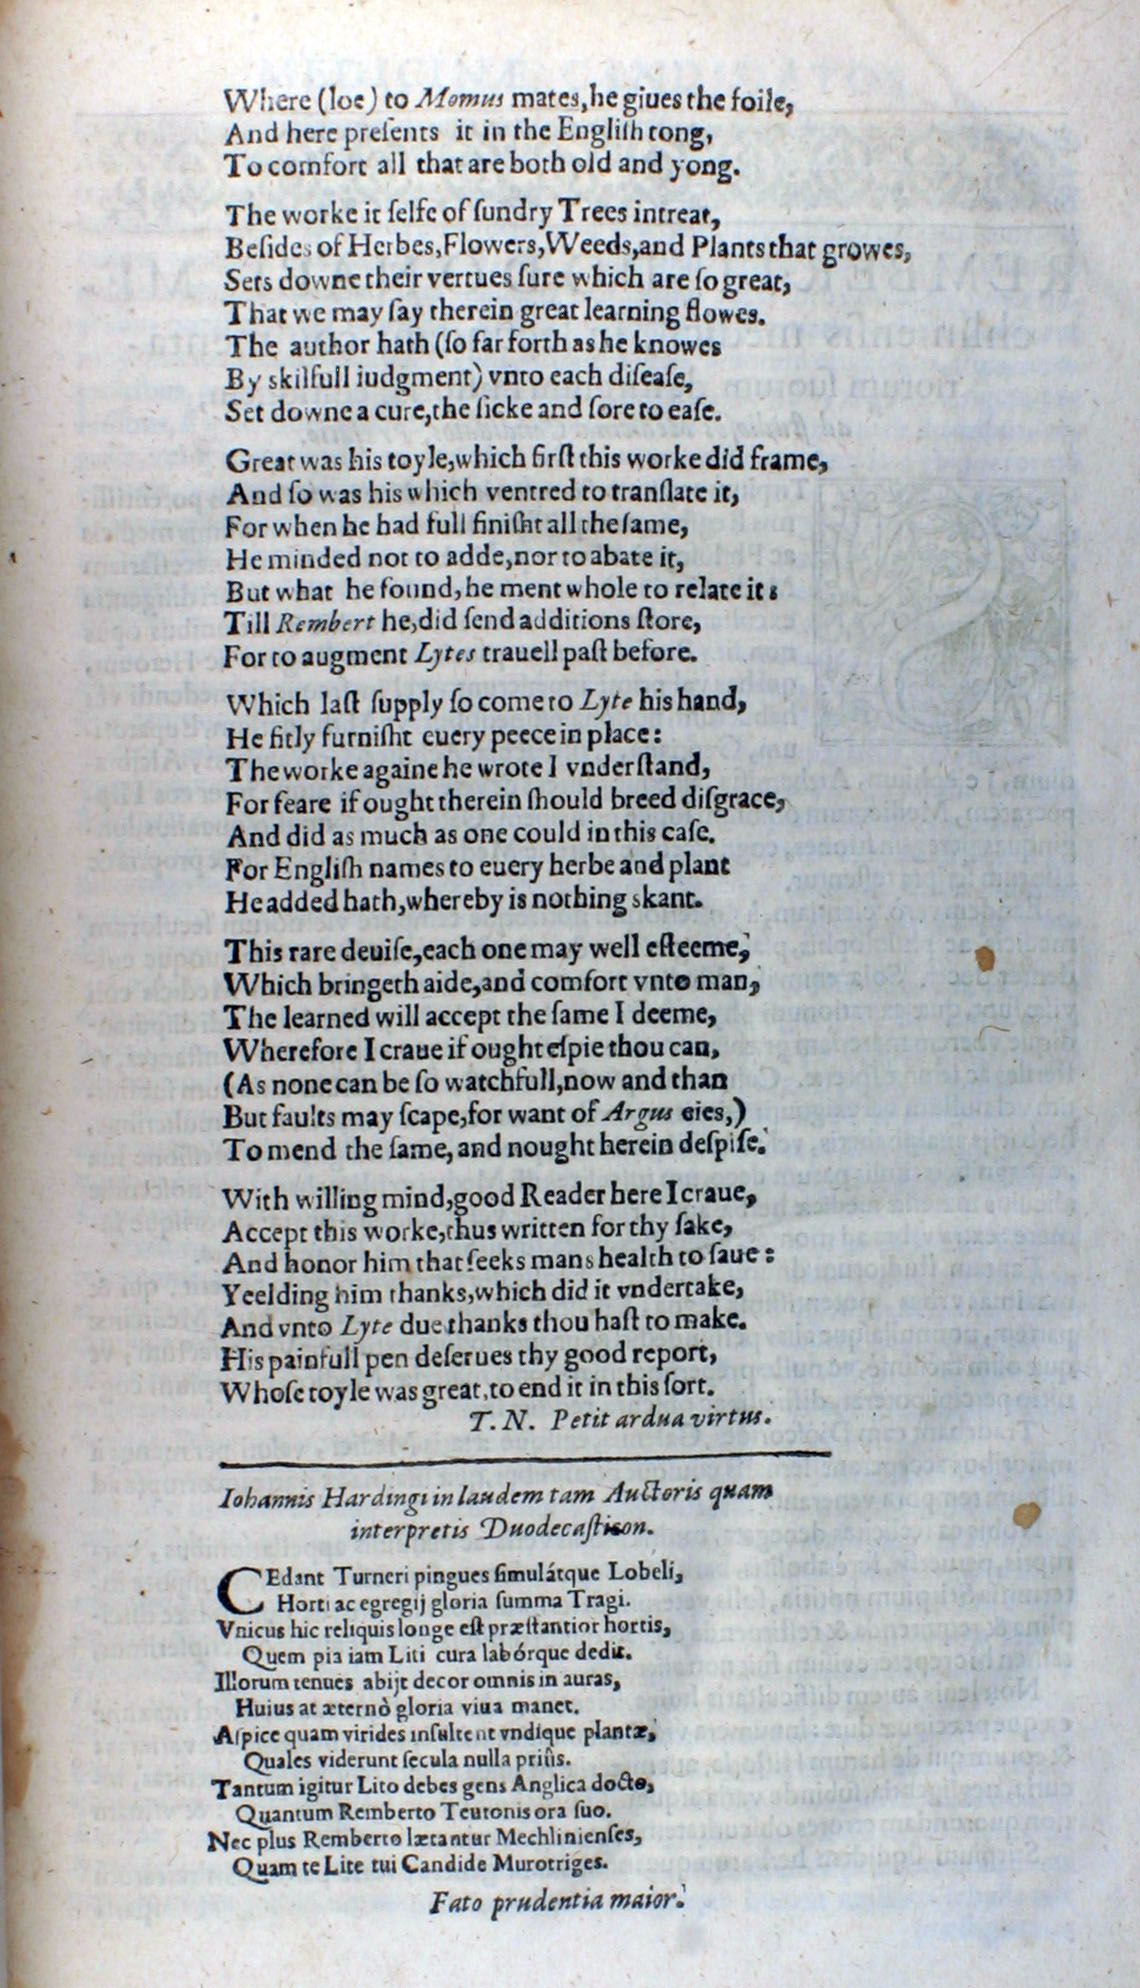 Where (loe) to Momus mates, he giues the foile,
And here preſents it in the Engliſh tong,
To comfort all that are both old and yong.
The worke it ſelfe of ſundry Trees intreat,
Beſides of Herbes, Flowers, Weeds, and Plants that growes,
Sets downe their vertues ſure which are ſo great,
That we may ſay therein great learning flowes.
The author hath (ſo far forth as he knowes
By skilfull iudgment) vnto each diſeaſe,
Set downe a cure, the ſicke and ſore to eaſe.
Great was his toyle, which firſt this worke did frame,
And ſo was his which ventred to tranſlate it,
For when he had full finiſht all the ſame,
He minded not to adde, nor to abate it,
But what he found, he ment whole to relate it:
Till Rembert he, did ſend additions ſtore,
For to augment Lytes trauell paſt before.
Which laſt ſupply ſo come to Lyte his hand,
He fitly furniſht euery peece in place:
The worke againe he wrote I vnderſtand,
For feare if ought therein ſhould breed diſgrace,
And did as much as one could in this caſe.
For Engliſh names to euery herbe and plant
He added hath, whereby is nothing skant.
This rare deuiſe, each one may well eſteeme,
Which bringeth aide, and comfort vnto man,
The learned will accept the ſame I deeme,
Wherefore I craue if ought eſpie thou can,
(As none can be ſo watchfull, now and than
But faults may ſcape, for want of Argus eies,)
To mend the ſame, and nought herein deſpiſe.
With willing mind, good Reader here I craue,
Accept this worke, thus written for thy ſake,
And honor him that ſeeks mans health to ſaue:
Yeelding him thanks, which did it vndertake,
And vnto Lyte due thanks thou haſt to make.
His painfull pen deſerues thy good report,
Whoſe toyle was great, to end it in this ſort.
T. N. Petit ardua virtus.
Iohannis Hardingi in laudem tam Auctoris quam
interpretis Duodecaſticon.
CEdant Turneri pingues ſimulátque Lobeli,
Horti ac egregij gloria ſumma Tragi.
Vnicus hic reliquis longe eſt præſtantior hortis,
Quem pia iam Liti cura labórque dedit.
Illorum tenues abijt decor omnis in auras,
Huius at æternò gloria viua manet.
Aſpice quam virides inſultent vndique plantæ,
Quales viderunt ſecula nulla priûs.
Tantum igitur Lito debes gens Anglica docto,
Quantum Remberto Teutonis ora ſuo.
Nec plus Remberto lætantur Mechlinienſes,
Quam te Lite tui Candide Murotriges.
Fato prudentia maior.